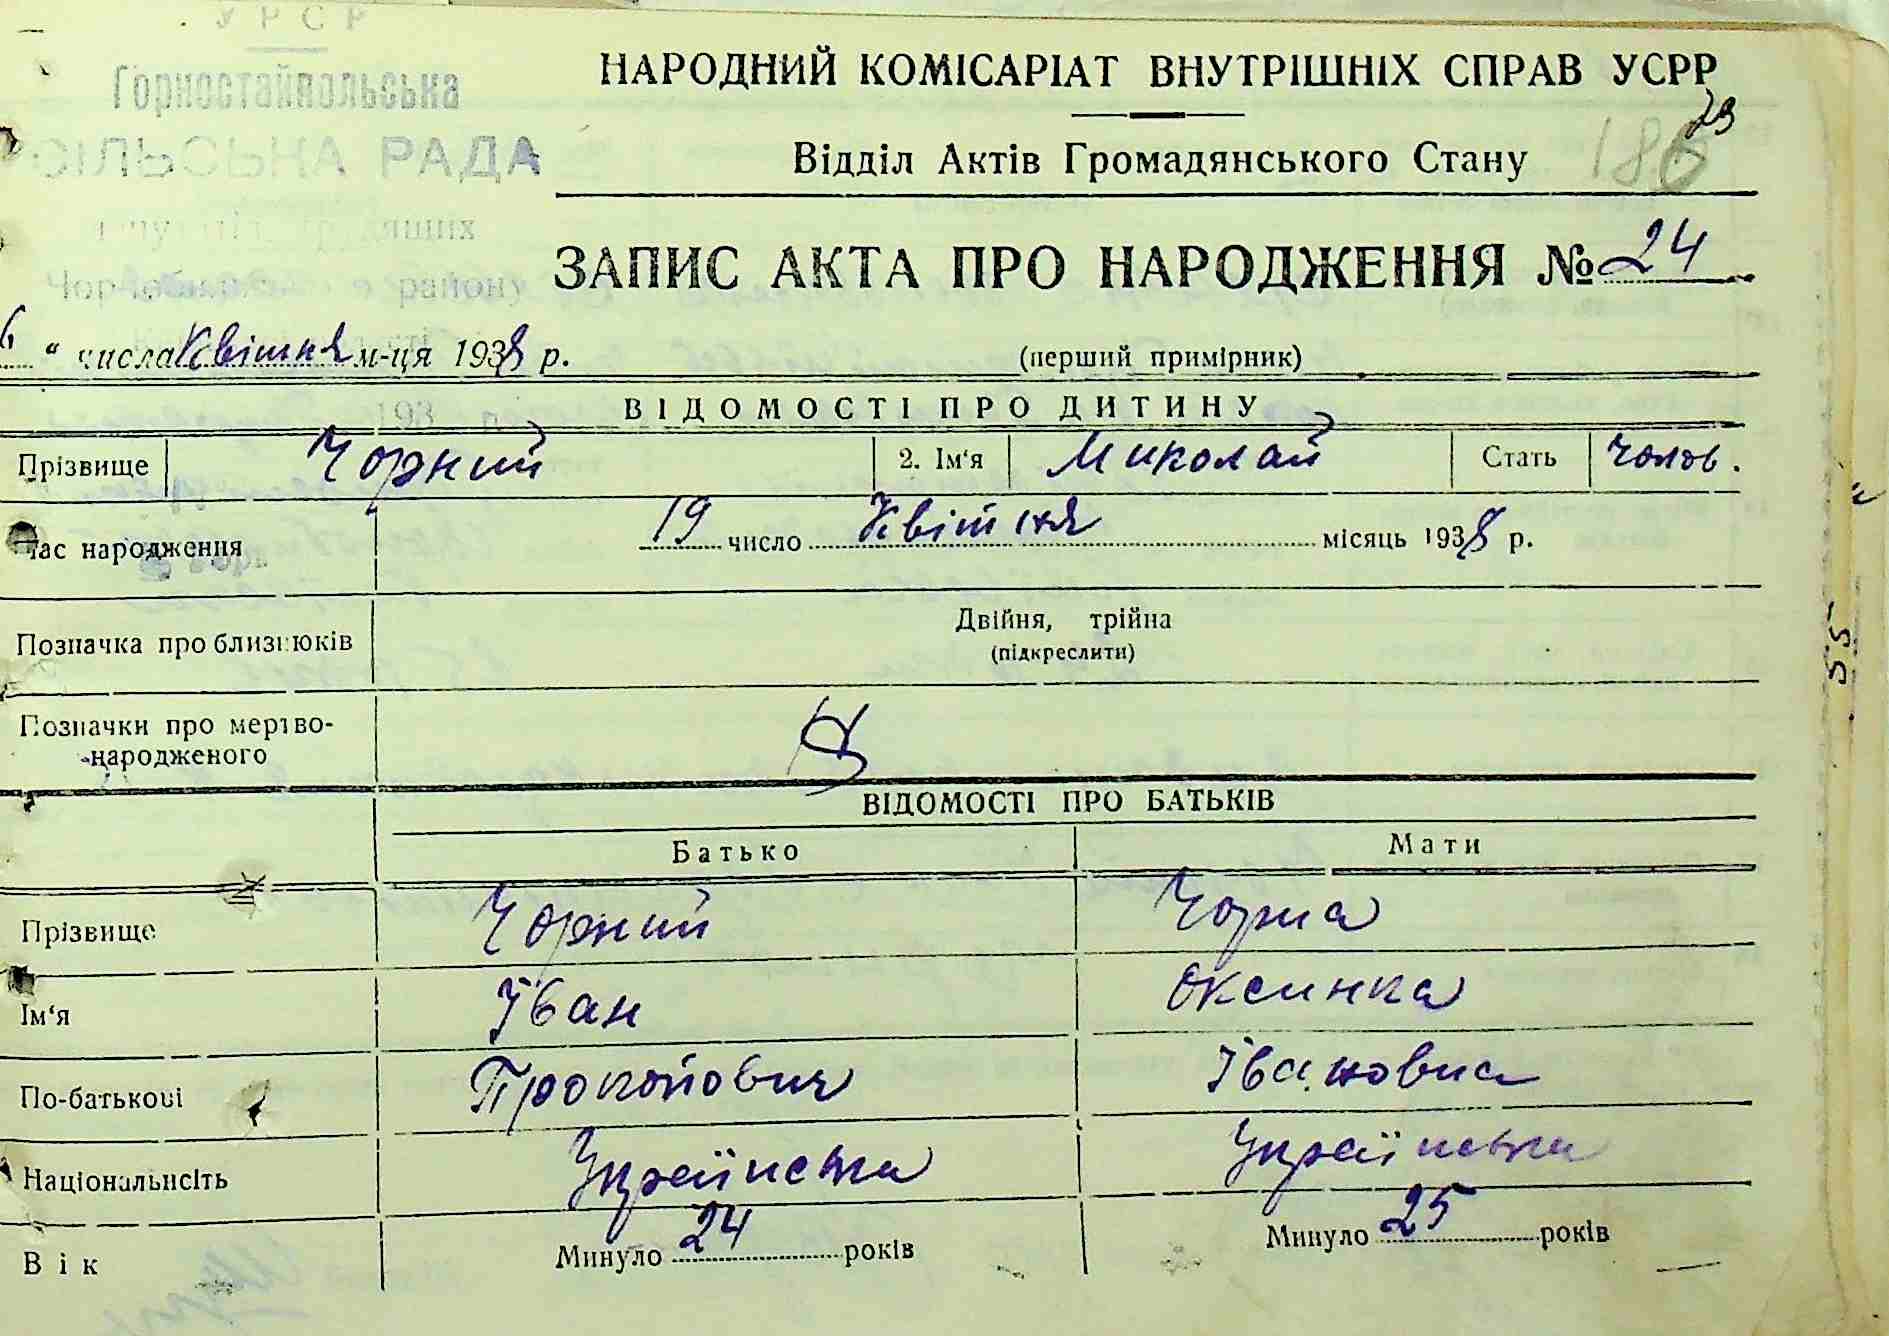 УРСР
Горностайпольська
СІЛЬСЬКА РАДА
району
НАРОДНИЙ КОМІСАРІАТ ВНУТРІШНІХ СПРАВ УСРР
73
Відділ Актів Громадянського Стану 180
ЗАПИС АКТА ПРО НАРОДЖЕННЯ № 24
6 " числа Квітня м-ця 1938 р. (перший примірник)
193
ВІДОМОСТІ ПРО ДИТИНУ
Прізвище Чорний 2. Ім‘я Миколай Стать чолов.
Час народження 19 число Квітня місяць 1938 р.
Позначка про близнюків Двійня, трійна
(підкреслити)
Позначки про мертво-
народженого
ВІДОМОСТІ ПРО БАТЬКІВ
Батько Мати
Прізвище Чорний Чорна
Ім‘я Іван Оксинка
По-батькові Прокопович Івановна
Національність Українська Українська
Вік Минуло 24 років Минуло 25 років
55